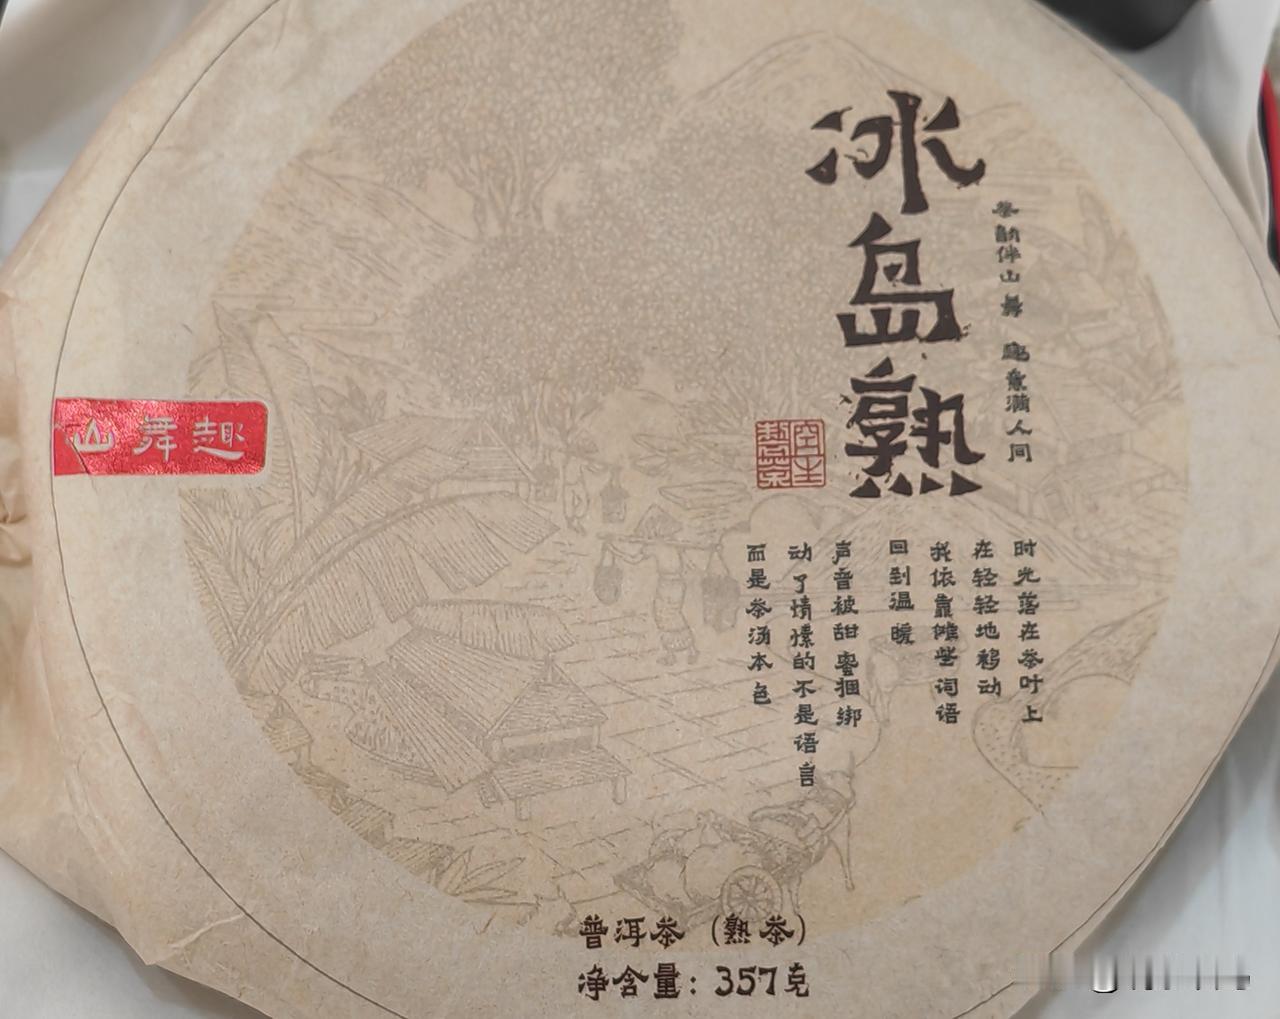 冰岛熟
茶韵伴山舞 趣意满人间
山舞趣
时光落在茶叶上
在轻轻地移动
我依靠些词语
回到温暖
声音被甜蜜捆绑
动了情愫的不是语言
而是茶汤本色
普洱茶（熟茶）
净含量：357克